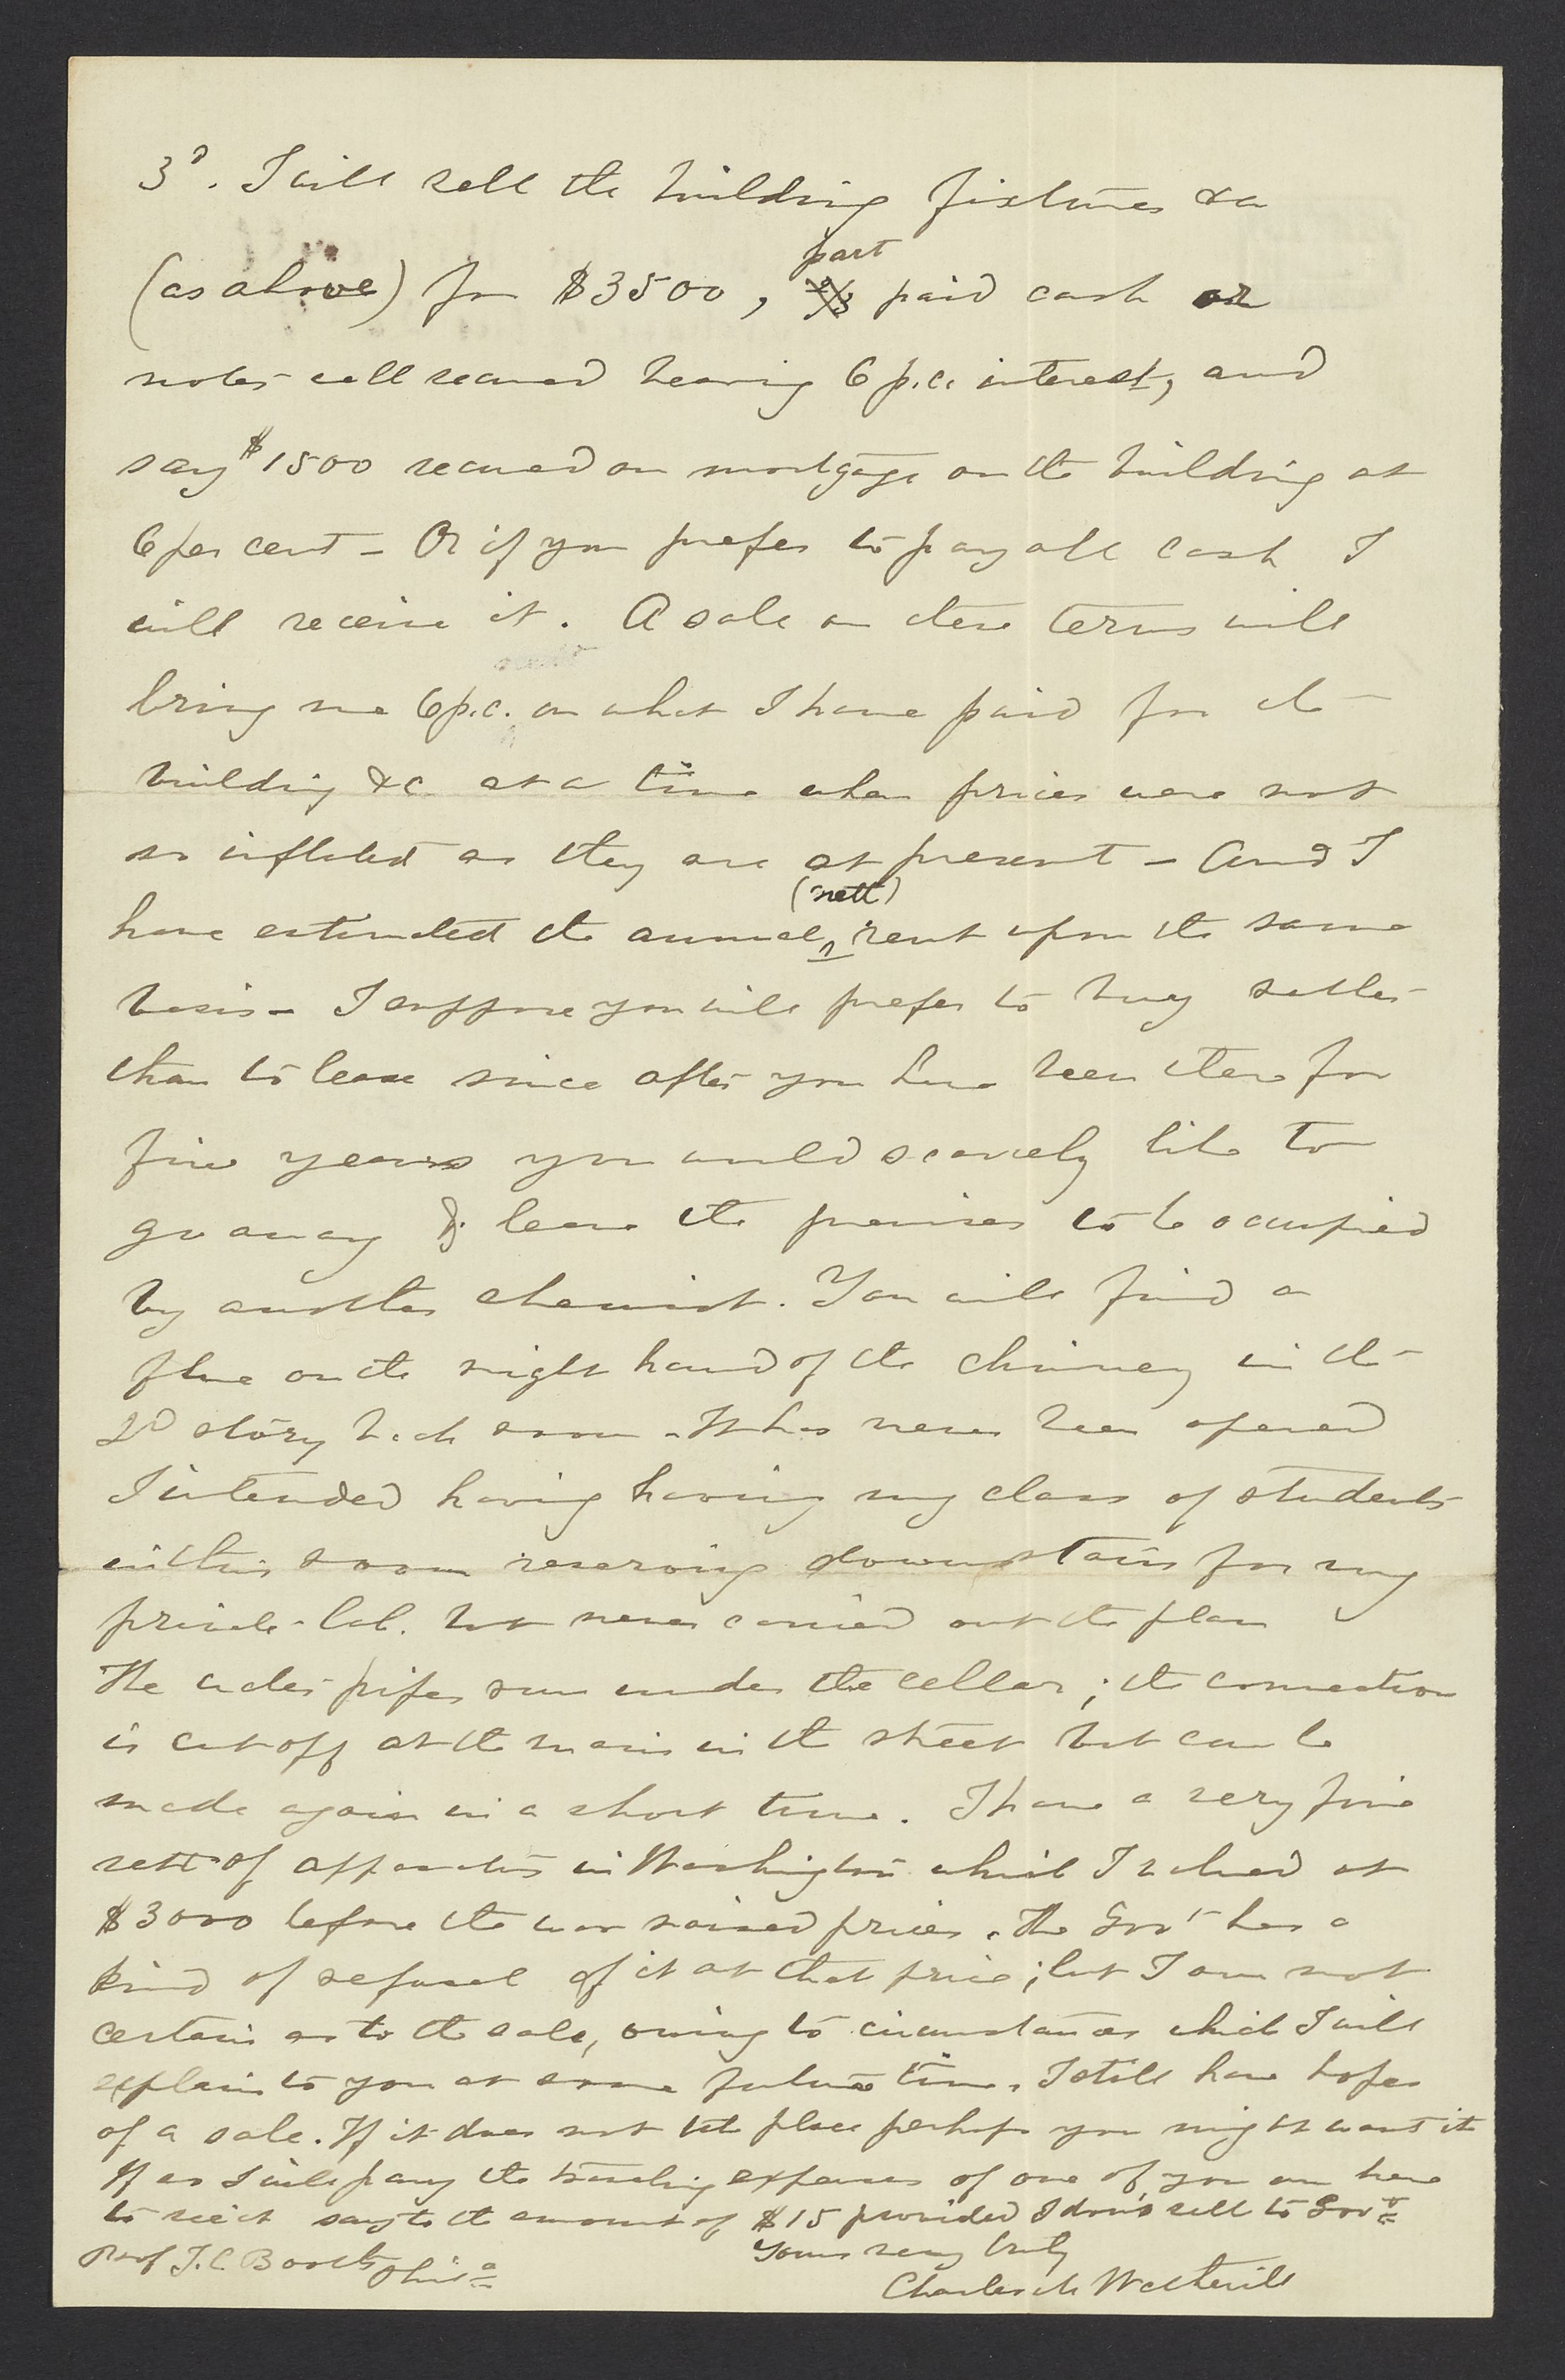 3d. I will sell the building fixtures &c
(as above) for $3500, part paid cash or
notes well secured bearing 6 p.c. interest, and
say $1500 secured on mortgage on the building at
6 per cent – Or if you prefer to pay all cash I
will receive it. A sale on these terms will
bring me 6 p.c. on what I have paid for the
building &c at a time when prices were not
so inflated as they are at present – And I
have estimated the annual (nett) rent upon the same
basis – I suppose you will prefer to buy rather
than to lease since after you have been there for
five years you would scarcely like to
go away & leave the premises to be occupied
by another chemist. You will find a
flue on the right hand of the chimney in the
2d story back room. It has never been opened
I intended having having my class of students
in this room reserving down stairs for my
private lab. but never carried out the plan
The water pipes run under the cellar; the connection
is cut off at the main in the street but can be
made again in a short time. I have a very fine
sett of apparatus in Washington which I valued at
$3000 before the war raised prices. The Govt has a
kind of refusal of it at that price; but I am not
certain as to the sale, owing to circumstances which I will
explain to you at some future time. I still have hopes
of a sale. If it does not take place perhaps you might want it
If so I will pay the traveling expenses of one of you on here
to see it say to the amount of $15 provided I don't sell to Govt
Yours very truly
Charles M Wetherill
Prof J.C. Booth Phila